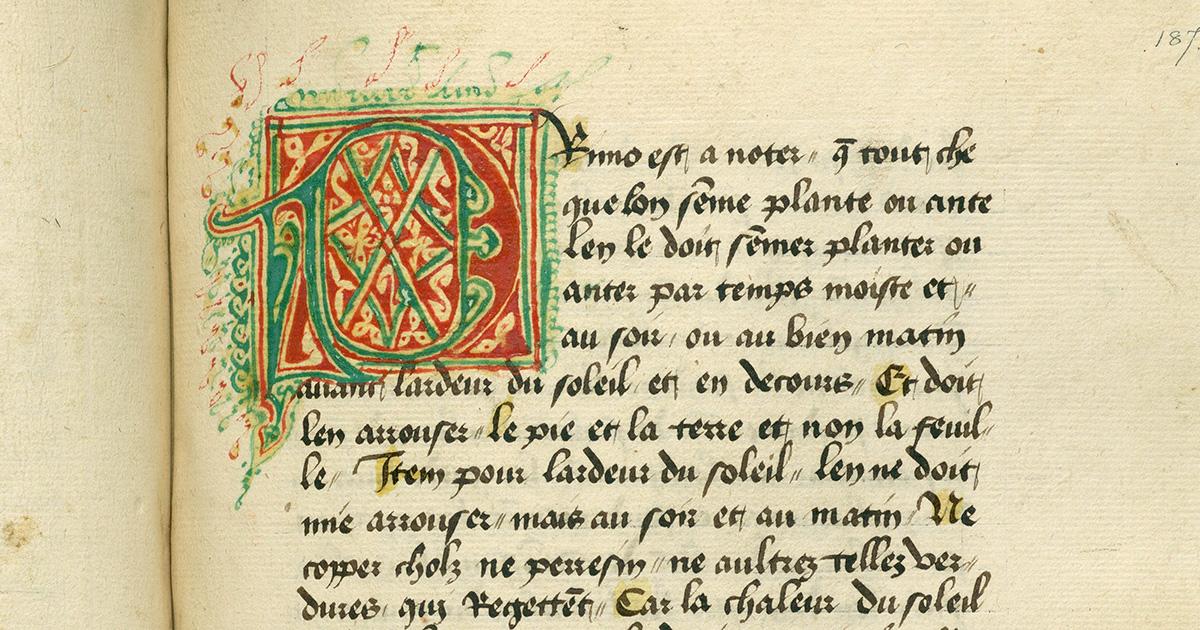 187
PRimo est a noter〃 q̄ tout che
que lon sēme plante ou ante
len le doit sēmer planter ou
anter par temps moiste et〃
au soir, ou au bien matin
auant lardeur du soleil et en decours〃 Et doit
len arrouser〃 le pie et la terre et non la feuil〃
le〃 Item pour lardeur du soleil〃 len ne doit
mie arrouser〃 mais au soir et au matin Ne
copper cholz ne perresin〃 ne aultrez tellez ver〃
dures, qui Regettēt〃 Car la chaleur du soleil